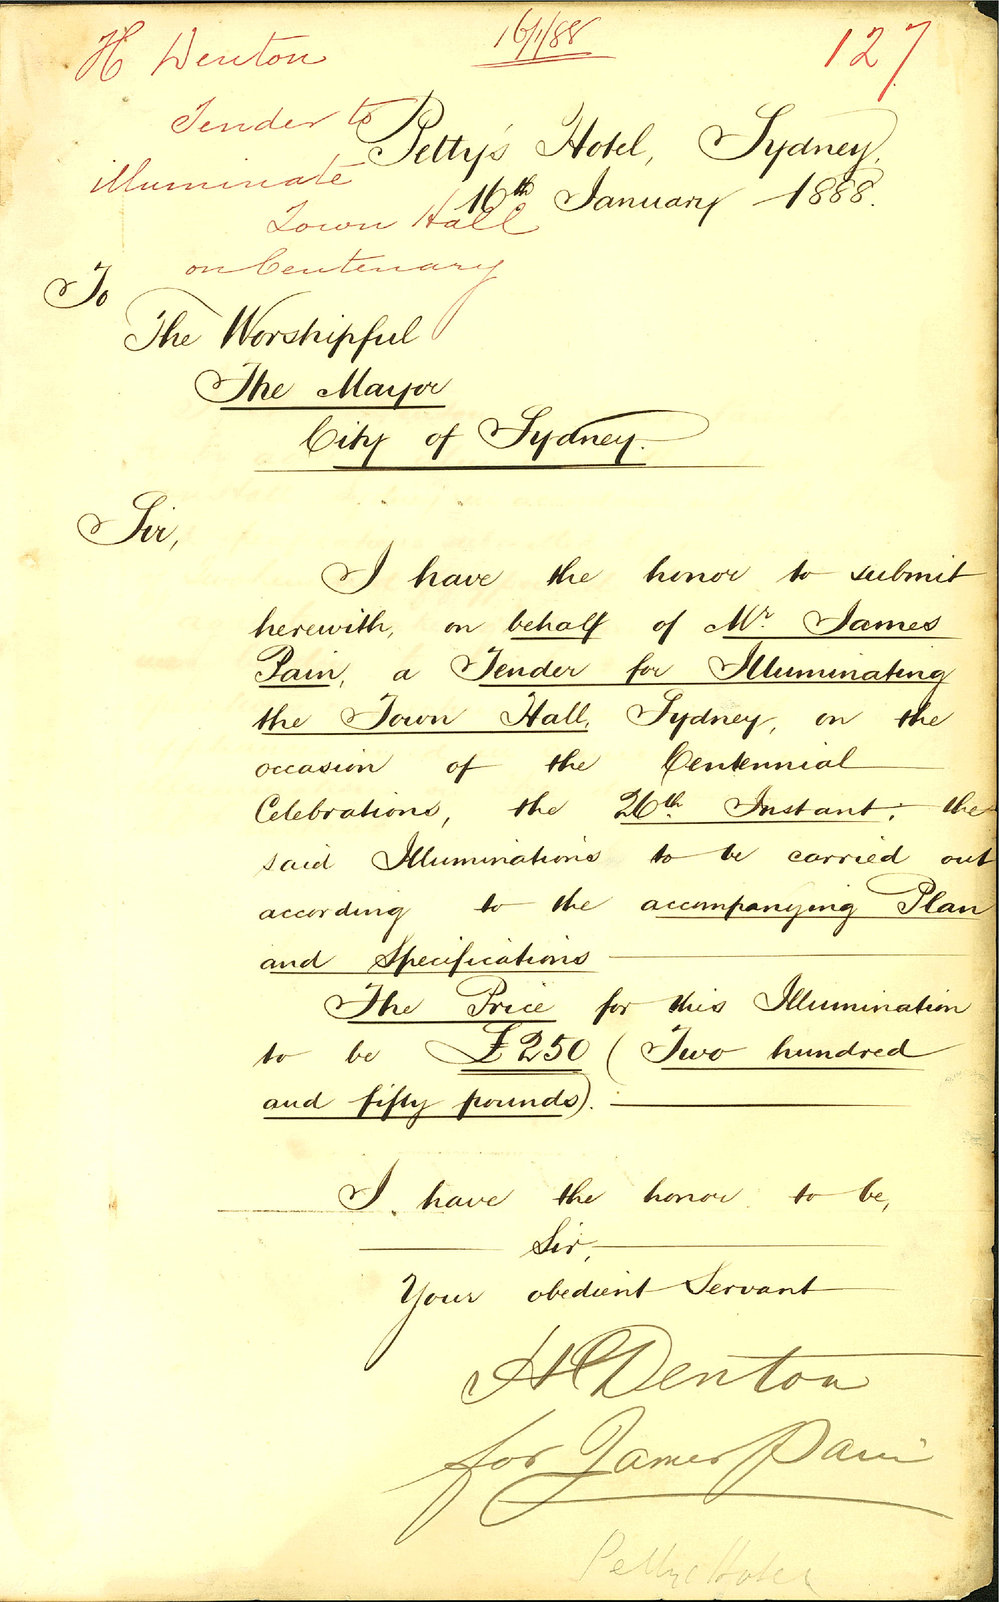 16/1/88
127
H Denton
Tender to
illuminate
Town Hall
on Centenary
Petty's Hotel, Sydney.
16th January 1888.
To
The Worshipful
The Mayor
City of Sydney.
Sir,
I have the honor to submit
herewith, on behalf of Mr. James
Pain, a Tender for Illuminating
the Town Hall, Sydney, on the
occasion of the Centennial
Celebrations, the 26th Instant; the
said Illuminations to be carried out
according to the accompanying Plan
and Specifications
The Price for this Illumination
to be £250 (Two hundred
and fifty pounds).
I have the honor to be,
Sir,
Your obedient Servant
H Denton
for James Pain
Pettys Hotel